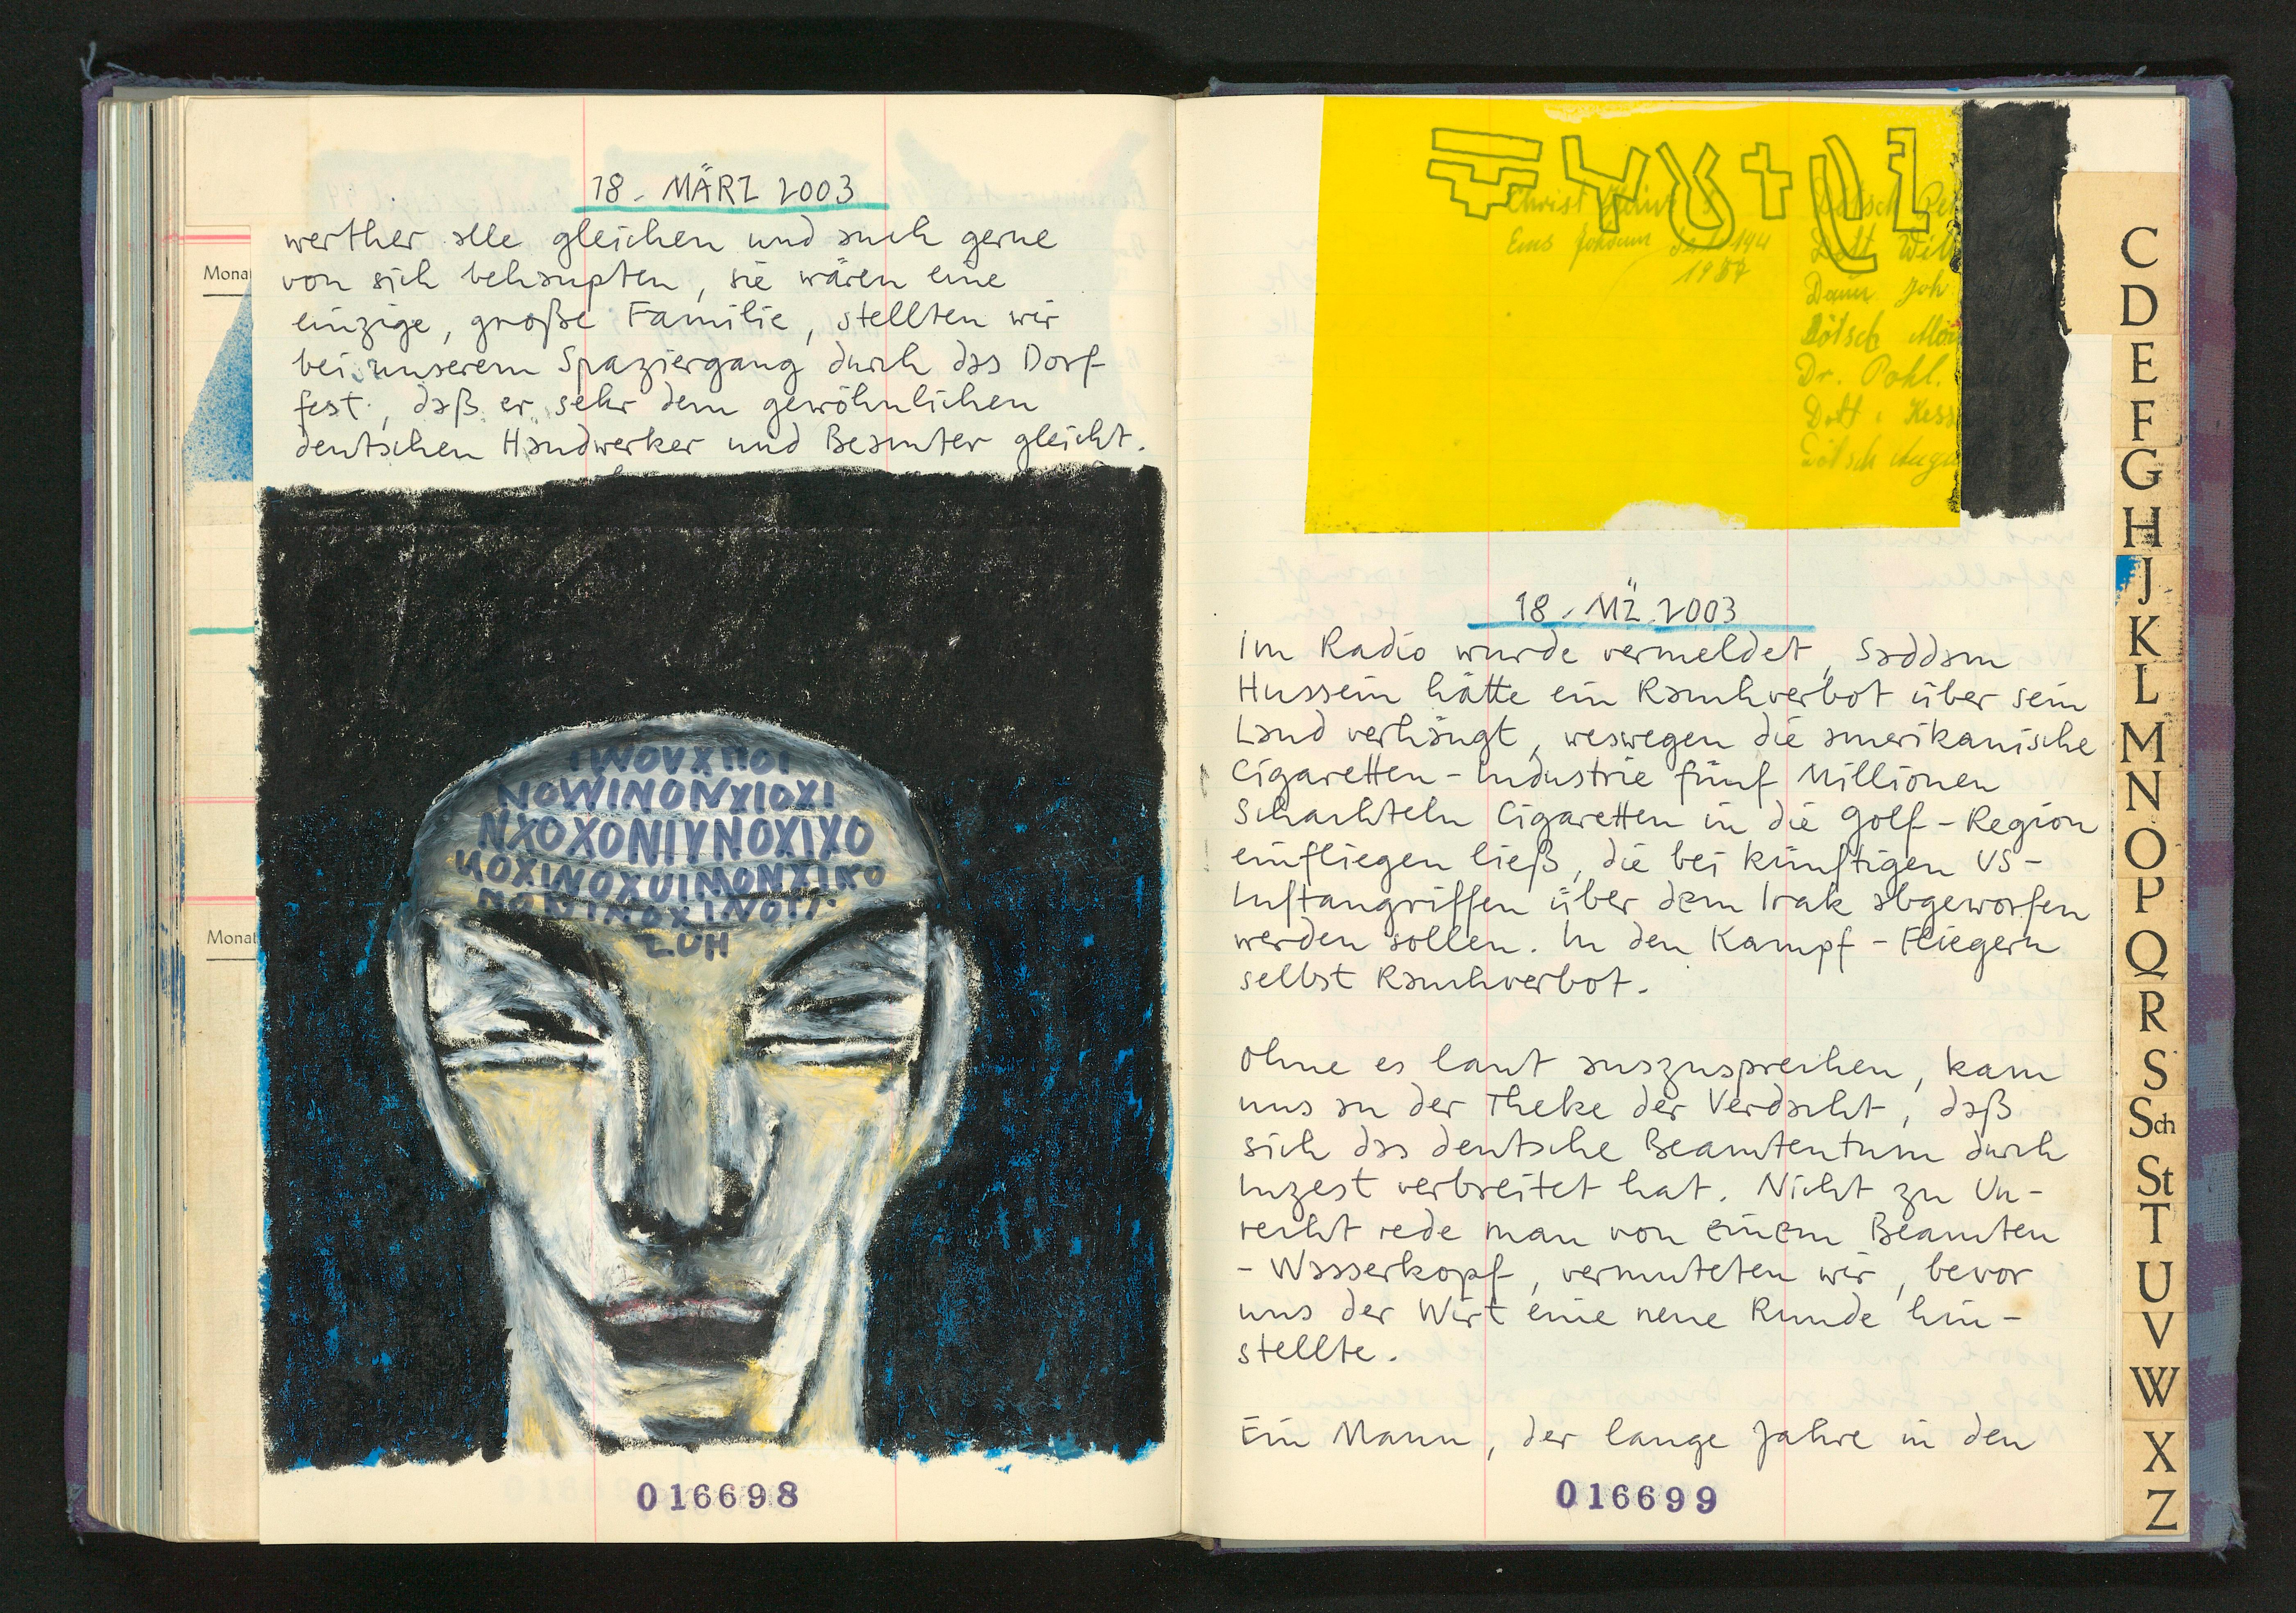 18. MÄRZ 2003
werther alle gleichen und auch gerne
von sich behaupten, sie wären eine
einzige, große Familie, stellten wir
bei unserem Spaziergang durch das Dorf
fest, daß er sehr dem gewöhnlichen
deutschen Handwerker und Beamter gleicht.
Monat
Monat
NOWINONXIOXI
NXOXONIYNOXIXO
UOXINOXUIMONXIKO
ZUH
016698
Christ
Johann
1987
Dötsch
Dott Will
Daum Joh
Dötsch
Dr. Pohl.
Dott. Kess
Dötsch
18. MZ 2003
Im Radio wurde vermeldet, Saddam
Hussein hätte ein Rauchverbot über sein
Land verhängt, weswegen die amerikanische
Cigaretten-Industrie fünf Millionen
Schachteln Cigaretten in die Golf-Region
einfliegen ließ, die bei künftigen US-
Luftangriffen über dem Irak abgeworfen
werden sollen. In den Kampf-Fliegern
selbst Rauchverbot.
Ohne es laut auszusprechen, kam
uns an der Theke der Verdacht, daß
sich das deutsche Beamtentum durch
Inzest verbreitet hat. Nicht zu Un-
recht rede man von einem Beamten
-Wasserkopf, vermuteten wir, bevor
uns der Wirt eine neue Runde hin-
stellte.
Ein Mann, der lange Jahre in den
016699
C
D
E
F
G
H
J
K
L
M
N
O
P
Q
R
S
Sch
St
T
U
V
W
X
Z